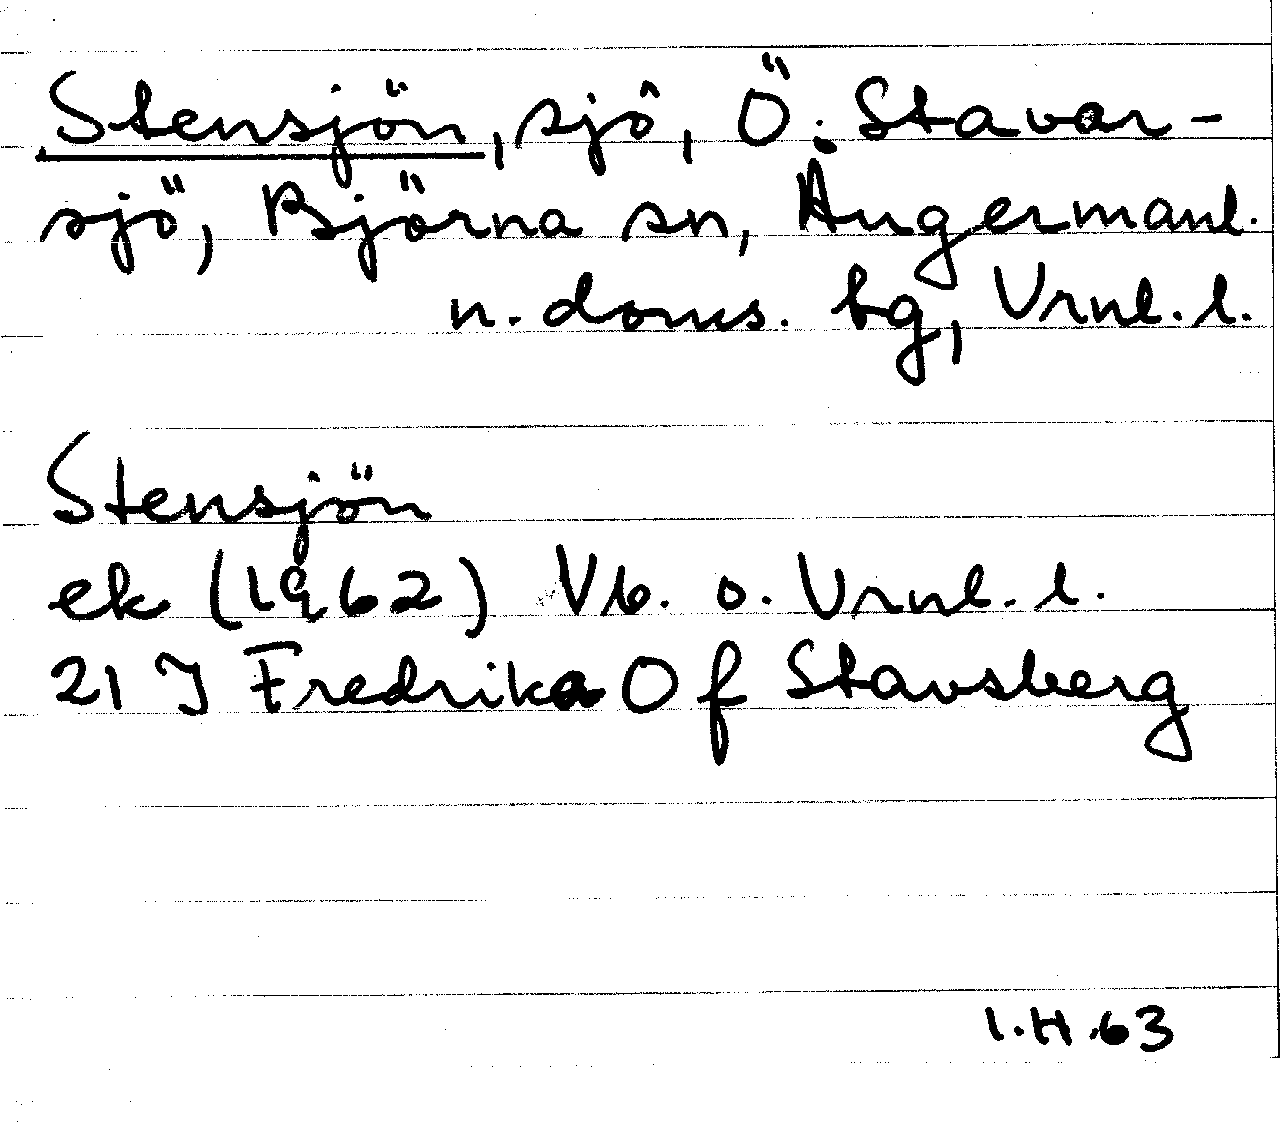 Stensjön, sjö, Ö. Stavar-
sjö, Björna sn, Ångermanl.
n. doms. bg, Vrnl. l.
Stensjön
ek (1962) Vb. o. Vrnl. l.
21 J Fredrika O f Stavsberg
I.H.63